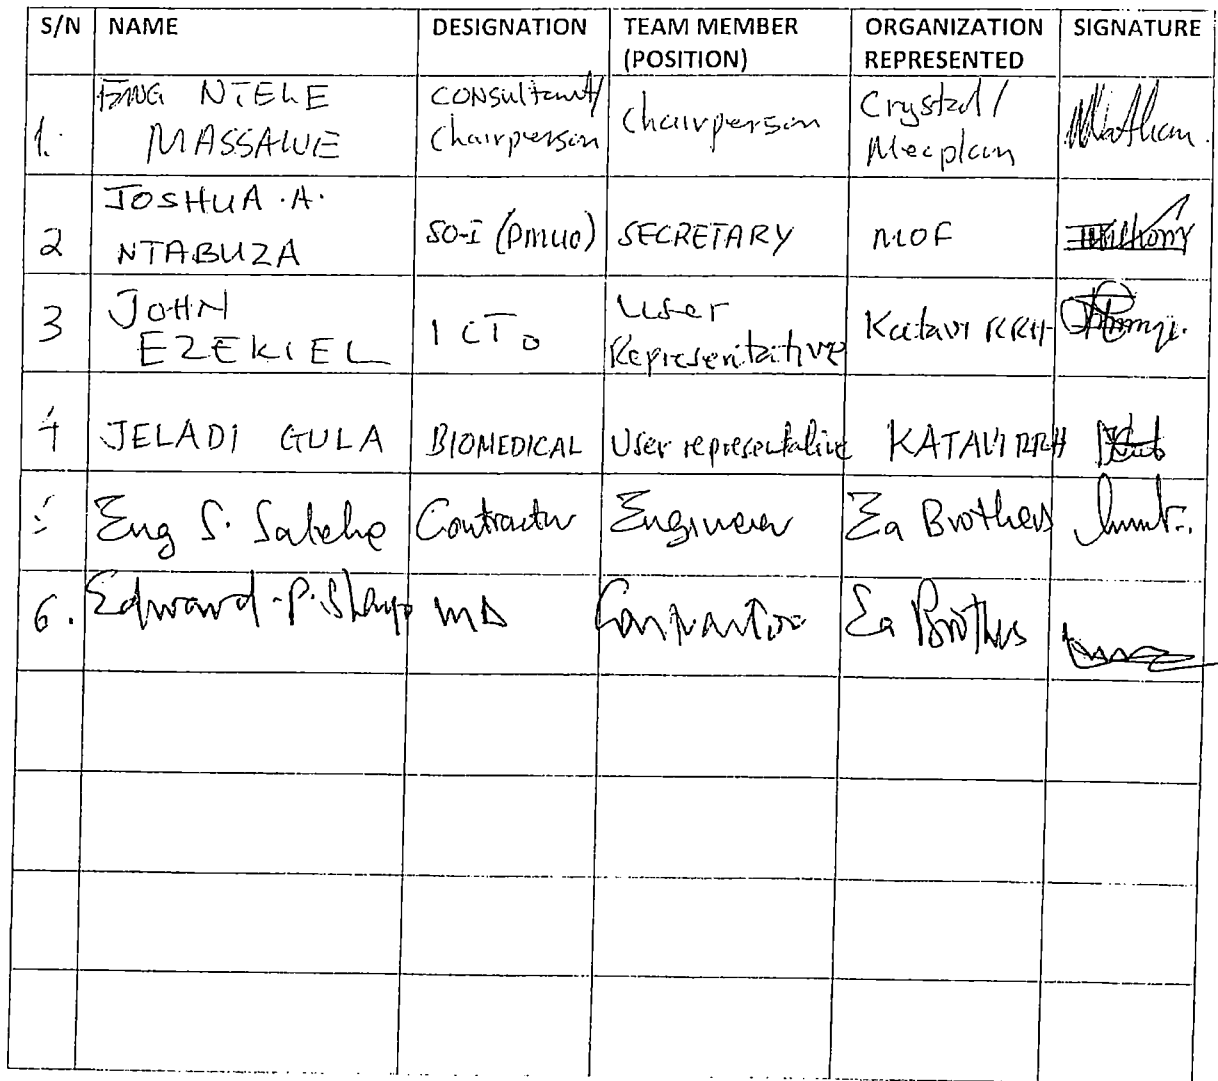 S/N NAME DESIGNATION TEAM MEMBER (POSITION) ORGANIZATION REPRESENTED SIGNATURE
1. ENG NTELE MASSAWE Consultant/ Chairperson Chairperson Crystal/ Mecplan
2 JOSHUA .A. NTABUZA SO-I (PMUO) SECRETARY MOF
3 JOHN EZEKIEL ICTO User Representative Katavi RRH
4 JELADI GULA BIOMEDICAL User representative KATAVI RRH
Eng S. Salehe Contractor Engineer Ea Brothers
6. Edward .P. MD Ea Brothers